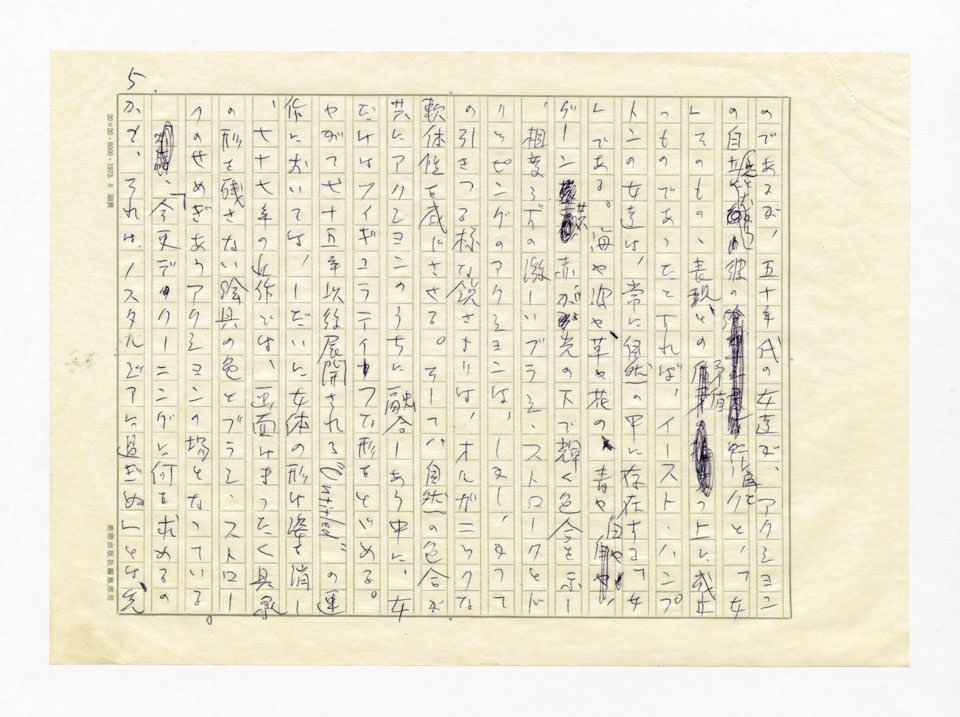 のであるが、五十年代の女達が、アクション
の自立 彼の
そのもの、表現との矛盾の上に成立
つものであったとすれば、イースト・ハンプ
トンの女達は、常に自然の中に存在する女
である。海や波や草や花の、青や白や
赤が光の下で輝く色合を示し
、相変らずの激しいブラシ・ストロークとド
リッピングのアクションは、しかし、かつて
の引きつる様な鋭さよりは、オルガニックな
軟体性を感じさせる。そして、自然の色合が
共にアクションのうちに融合しあう中に、女
だけはフィギュラティーフな形をとどめる。
やがて七十五年以後展開される"Untitled"の連
作においては、しだいに女体の形は姿を消し
、七十七年の近作では、画面はまったく具象
の形を残さない絵具の色とブラシ・ストロー
クのせめぎあうアクションの場となっている
。「今更デ・クーニングに何を求めるの
か?、それは、ノスタルジアに過ぎぬ」とは、先
5.
20×20・8000・1973.
美術出版社編集部用